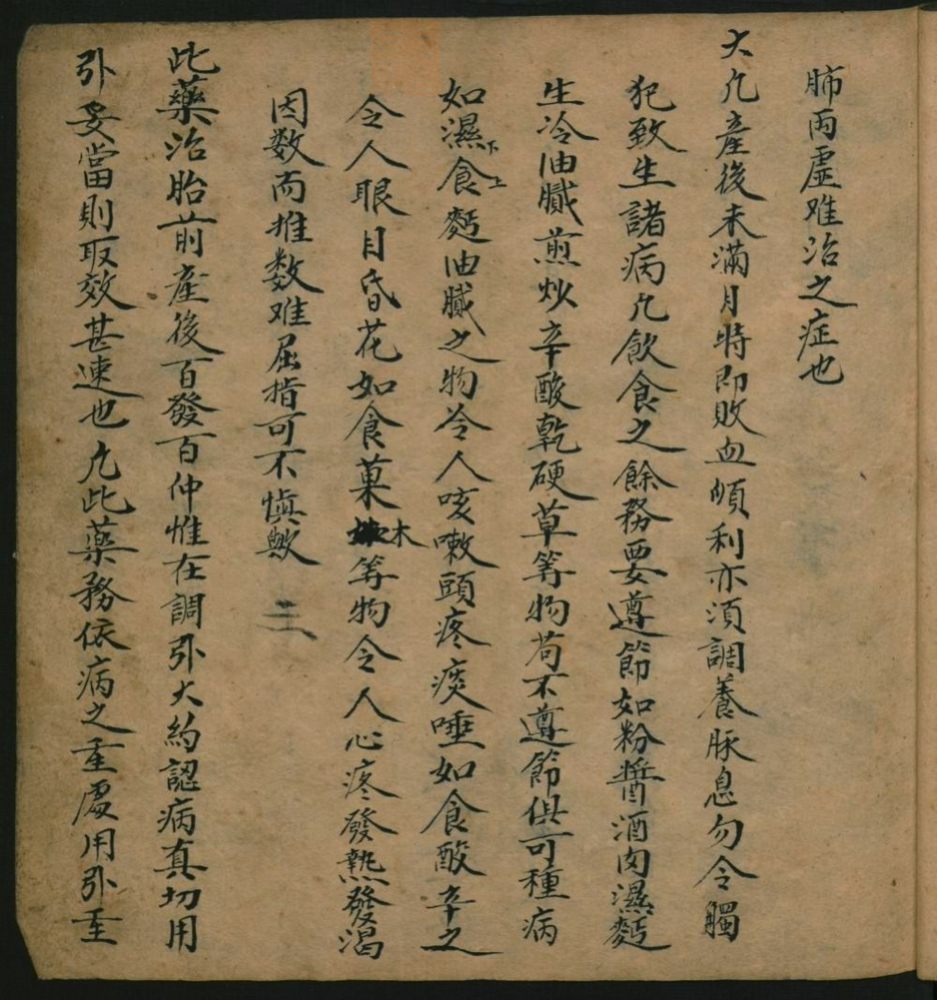 肺両虚难治之症也
大凡產後未滿月時即敗血順利亦須調養脉息勿令觸
犯致生諸病凡飲食之餘務要遵節如粉醬酒肉濕麪
生冷油膩煎炒辛酸乾硬草等物苟不遵節俱可種病
如濕下食上麪油膩之物令人咳嗽頭疼痰唾如食酸辛之
令人眼目昏花如食菓木等物令人心疼發熱發渴
因数而推数难屈指可不慎歟 三
此藥治胎前產後百發百仲惟在調引大約認病真切用
引妥當則取效甚速也凡此藥務依病之重處用引至